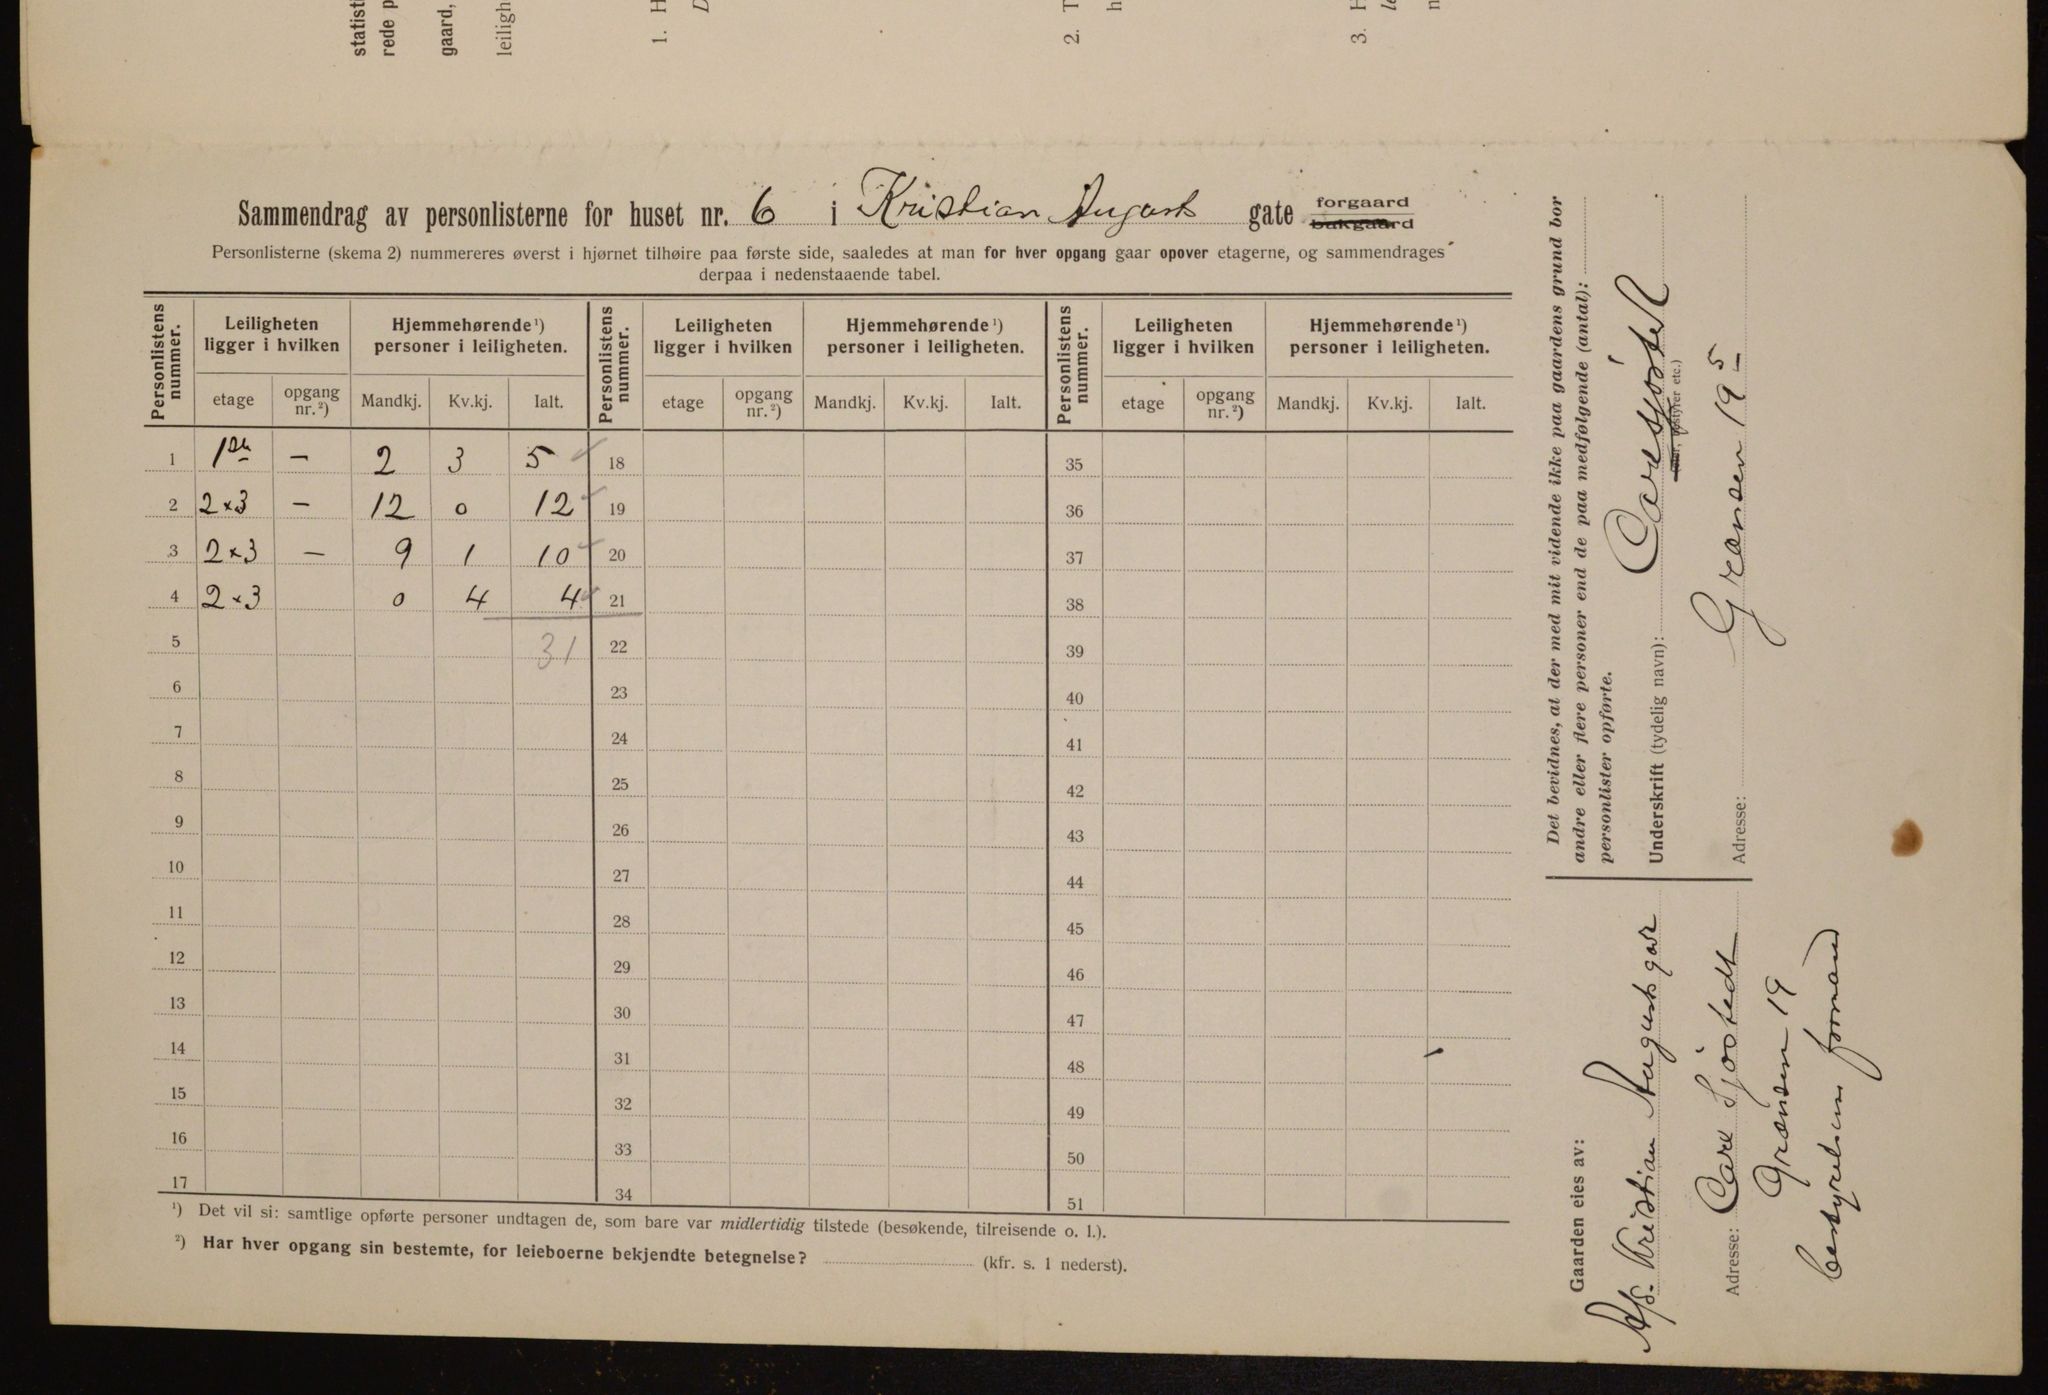 statisti
rede p
gaard,
leiligh
1. H
D
2. T
h
3. H
le
n
Sammendrag av personlisterne for huset nr. 6 i Kristian Augusts gate forgaard
bakgaard
Personlisterne (skema 2) nummereres øverst i hjørnet tilhøire paa første side, saaledes at man for hver opgang gaar opover etagerne, og sammendrages
derpaa i nedenstaaende tabel.
Personlistens nummer. Leiligheten ligger i hvilken Hjemmehørende ¹) personer i leiligheten. Personlistens nummer. Leiligheten ligger i hvilken Hjemmehørende ¹) personer i leiligheten. Personlistens nummer. Leiligheten ligger i hvilken Hjemmehørende ¹) personer i leiligheten.
etage opgang nr. ²) Mandkj. Kv.kj. Ialt. etage opgang nr. ²) Mandkj. Kv.kj. Ialt. etage opgang nr. ²) Mandkj. Kv.kj. Ialt.
1 – 2 3 5 18 35
2 2 × 3 – 12 0 12 19 36
3 2 × 3 – 9 1 10 20 37
4 2 × 3 0 4 4 21 38
5 31 22 39
6 23 40
7 24 41
8 25 42
9 26 43
10 27 44
11 28 45
12 29 46
13 30 47
14 31 48
15 32 49
16 33 50
17 34 51
¹) Det vil si: samtlige opførte personer undtagen de, som bare var midlertidig tilstede (besøkende, tilreisende o. l.).
²) Har hver opgang sin bestemte, for leieboerne bekjendte betegnelse? (kfr. s. 1 nederst).
Det bevidnes, at der med mit vidende ikke paa gaardens grund bor
andre eller flere personer end de paa medfølgende (antal):
personlister opførte.
Underskrift (tydelig navn): Carl Sjöstedt
(eier, bestyrer etc.)
Adresse: Grænsen 19
Gaarden eies av:
A/S. Kristian Augusts gar
Adresse: Carl Sjöstedt
Grænsen 19
bestyrelsens formand